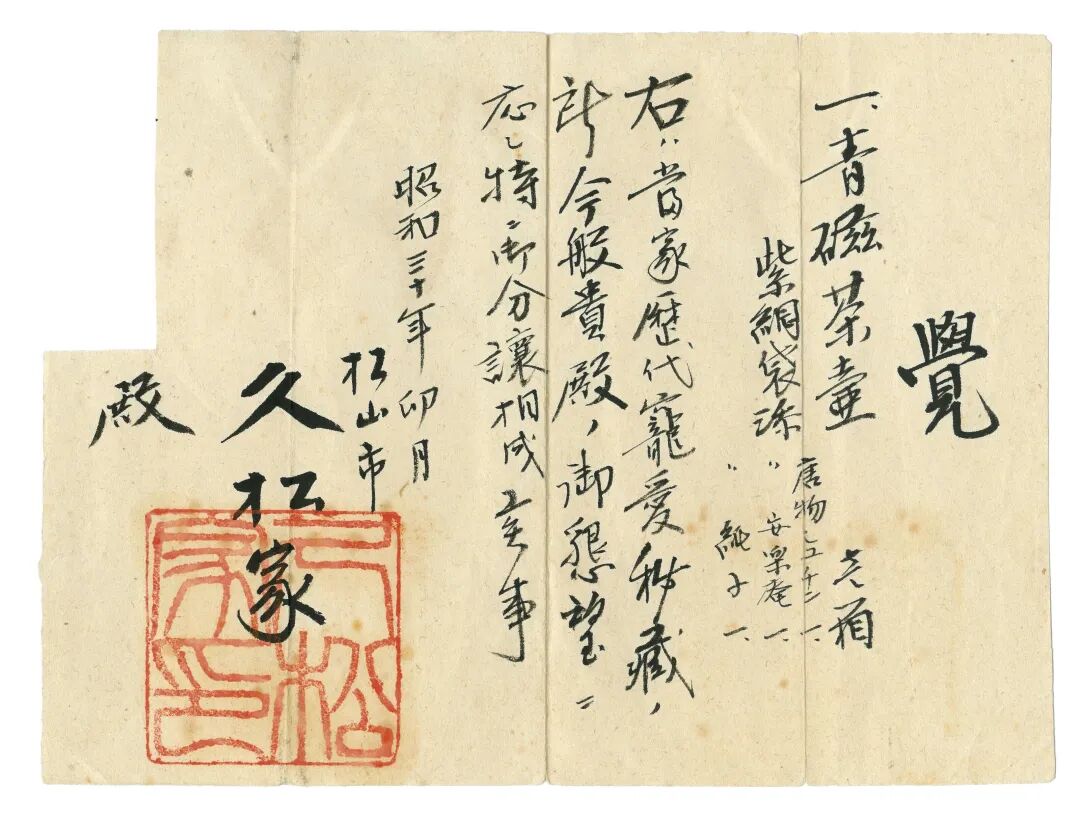 覺
一、青磁茶壷 壱箇
紫綱袋添 唐物 一、
〃 安楽庵 一、
純子 一、
右ハ當家歴代寵愛秘藏ノ
所今般貴殿ノ御懇望ニ
応シ特ニ御分讓相成 事
昭和三十年卯月
松山市
久松家
殿
久松家印